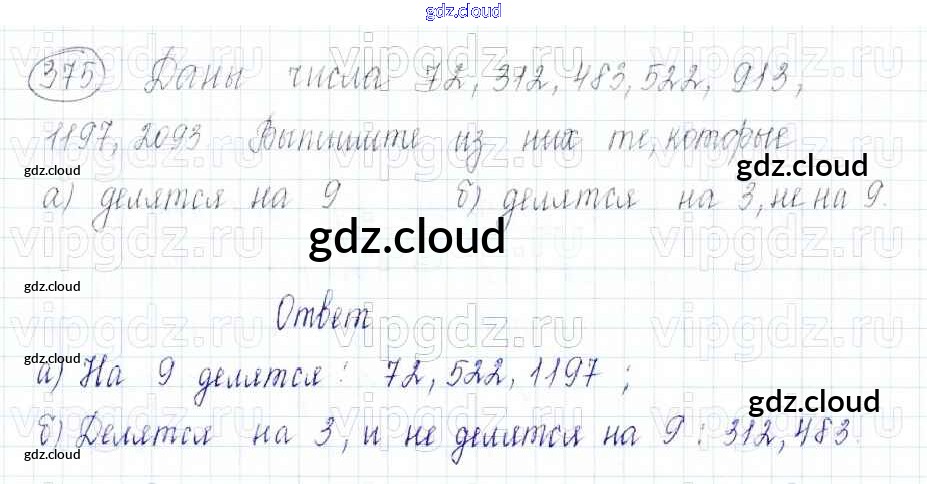 gdz.cloud
375 Даны числа 72, 312, 483, 522, 913,
1197, 2093 Выпишите из них те, которые
gdz.cloud
gdz.cloud
а) делятся на 9 б) делятся на 3, не на 9.
gdz.cloud
gdz.cloud
vipgdz.ru
Ответ
gdz.cloud
а) На 9 делятся: 72, 522, 1197;
gdz.cloud
б) Делятся на 3, и не делятся на 9: 312, 483.
gdz.cloud